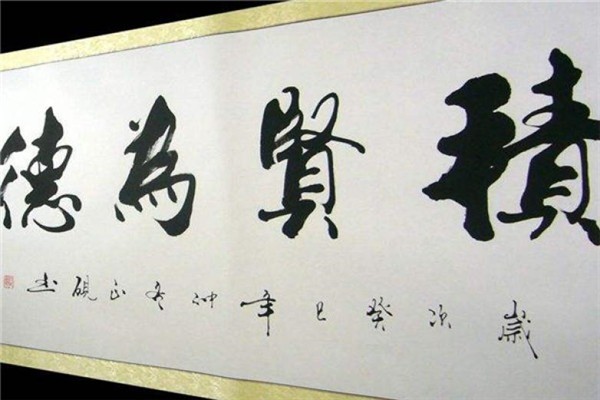 積賢為德
歲次癸巳年冲冬正硯书